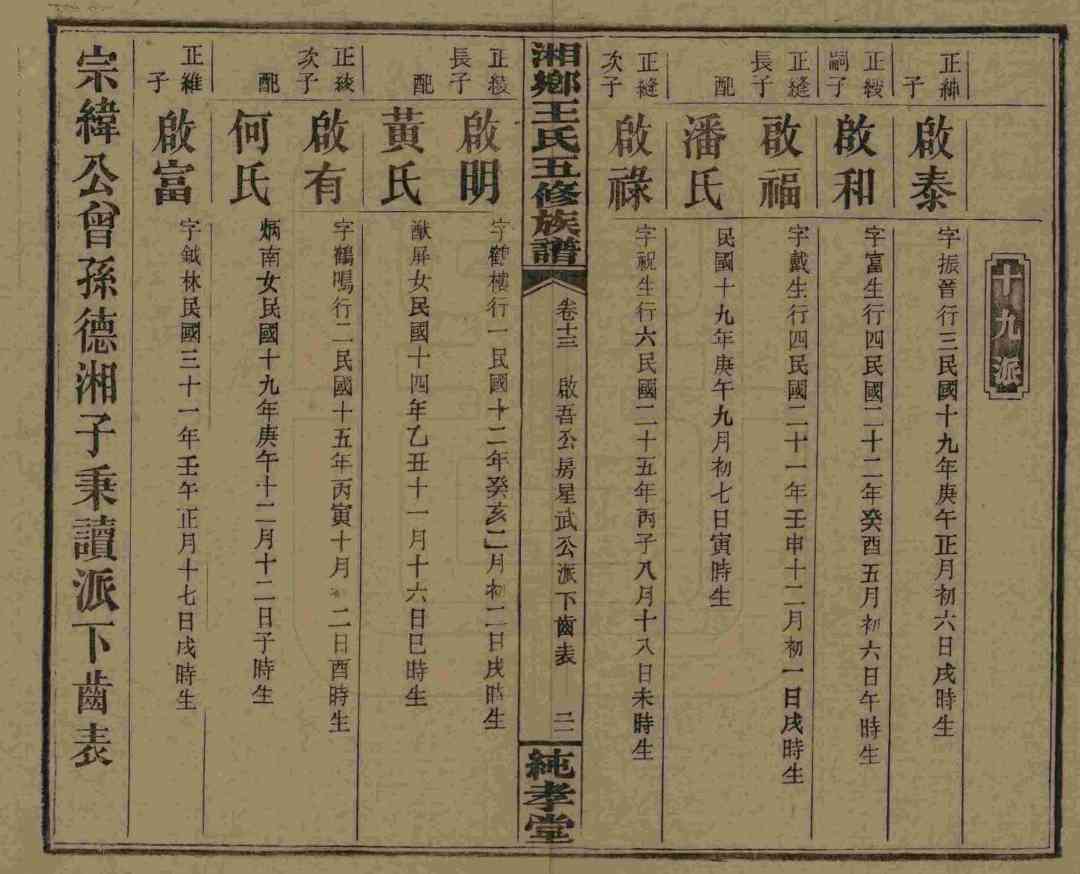 十九派
正紳子
啟泰
字振晉行三民國十九年庚午正月初六日戌時生
正綬嗣子
啟和
字富生行四民國二十二年癸酉五月初六日午時生
正縫長子
啟福
字戴生行四民國二十一年壬申十二月初一日戌時生
配
潘氏
民國十九年庚午九月初七日寅時生
正縫次子
啟祿
字祝生行六民國二十五年丙子八月十八日未時生
湘鄉王氏五修族譜
卷十三
啟吾公房星武公派下齒表
二二
純孝堂
正綾長子
啟明
字鶴樓行一民國十二年癸亥二月初二日戌時生
配
黃氏
猷屏女民國十四年乙丑十一月十六日巳時生
正綾次子
啟有
字鶴鳴行二民國十五年丙寅十月二日酉時生
配
何氏
炳南女民國十九年庚午十二月十二日子時生
正維子
啟富
字鉞林民國三十一年壬午正月十七日戌時生
宗緯公曾孫德湘子秉讀派下齒表